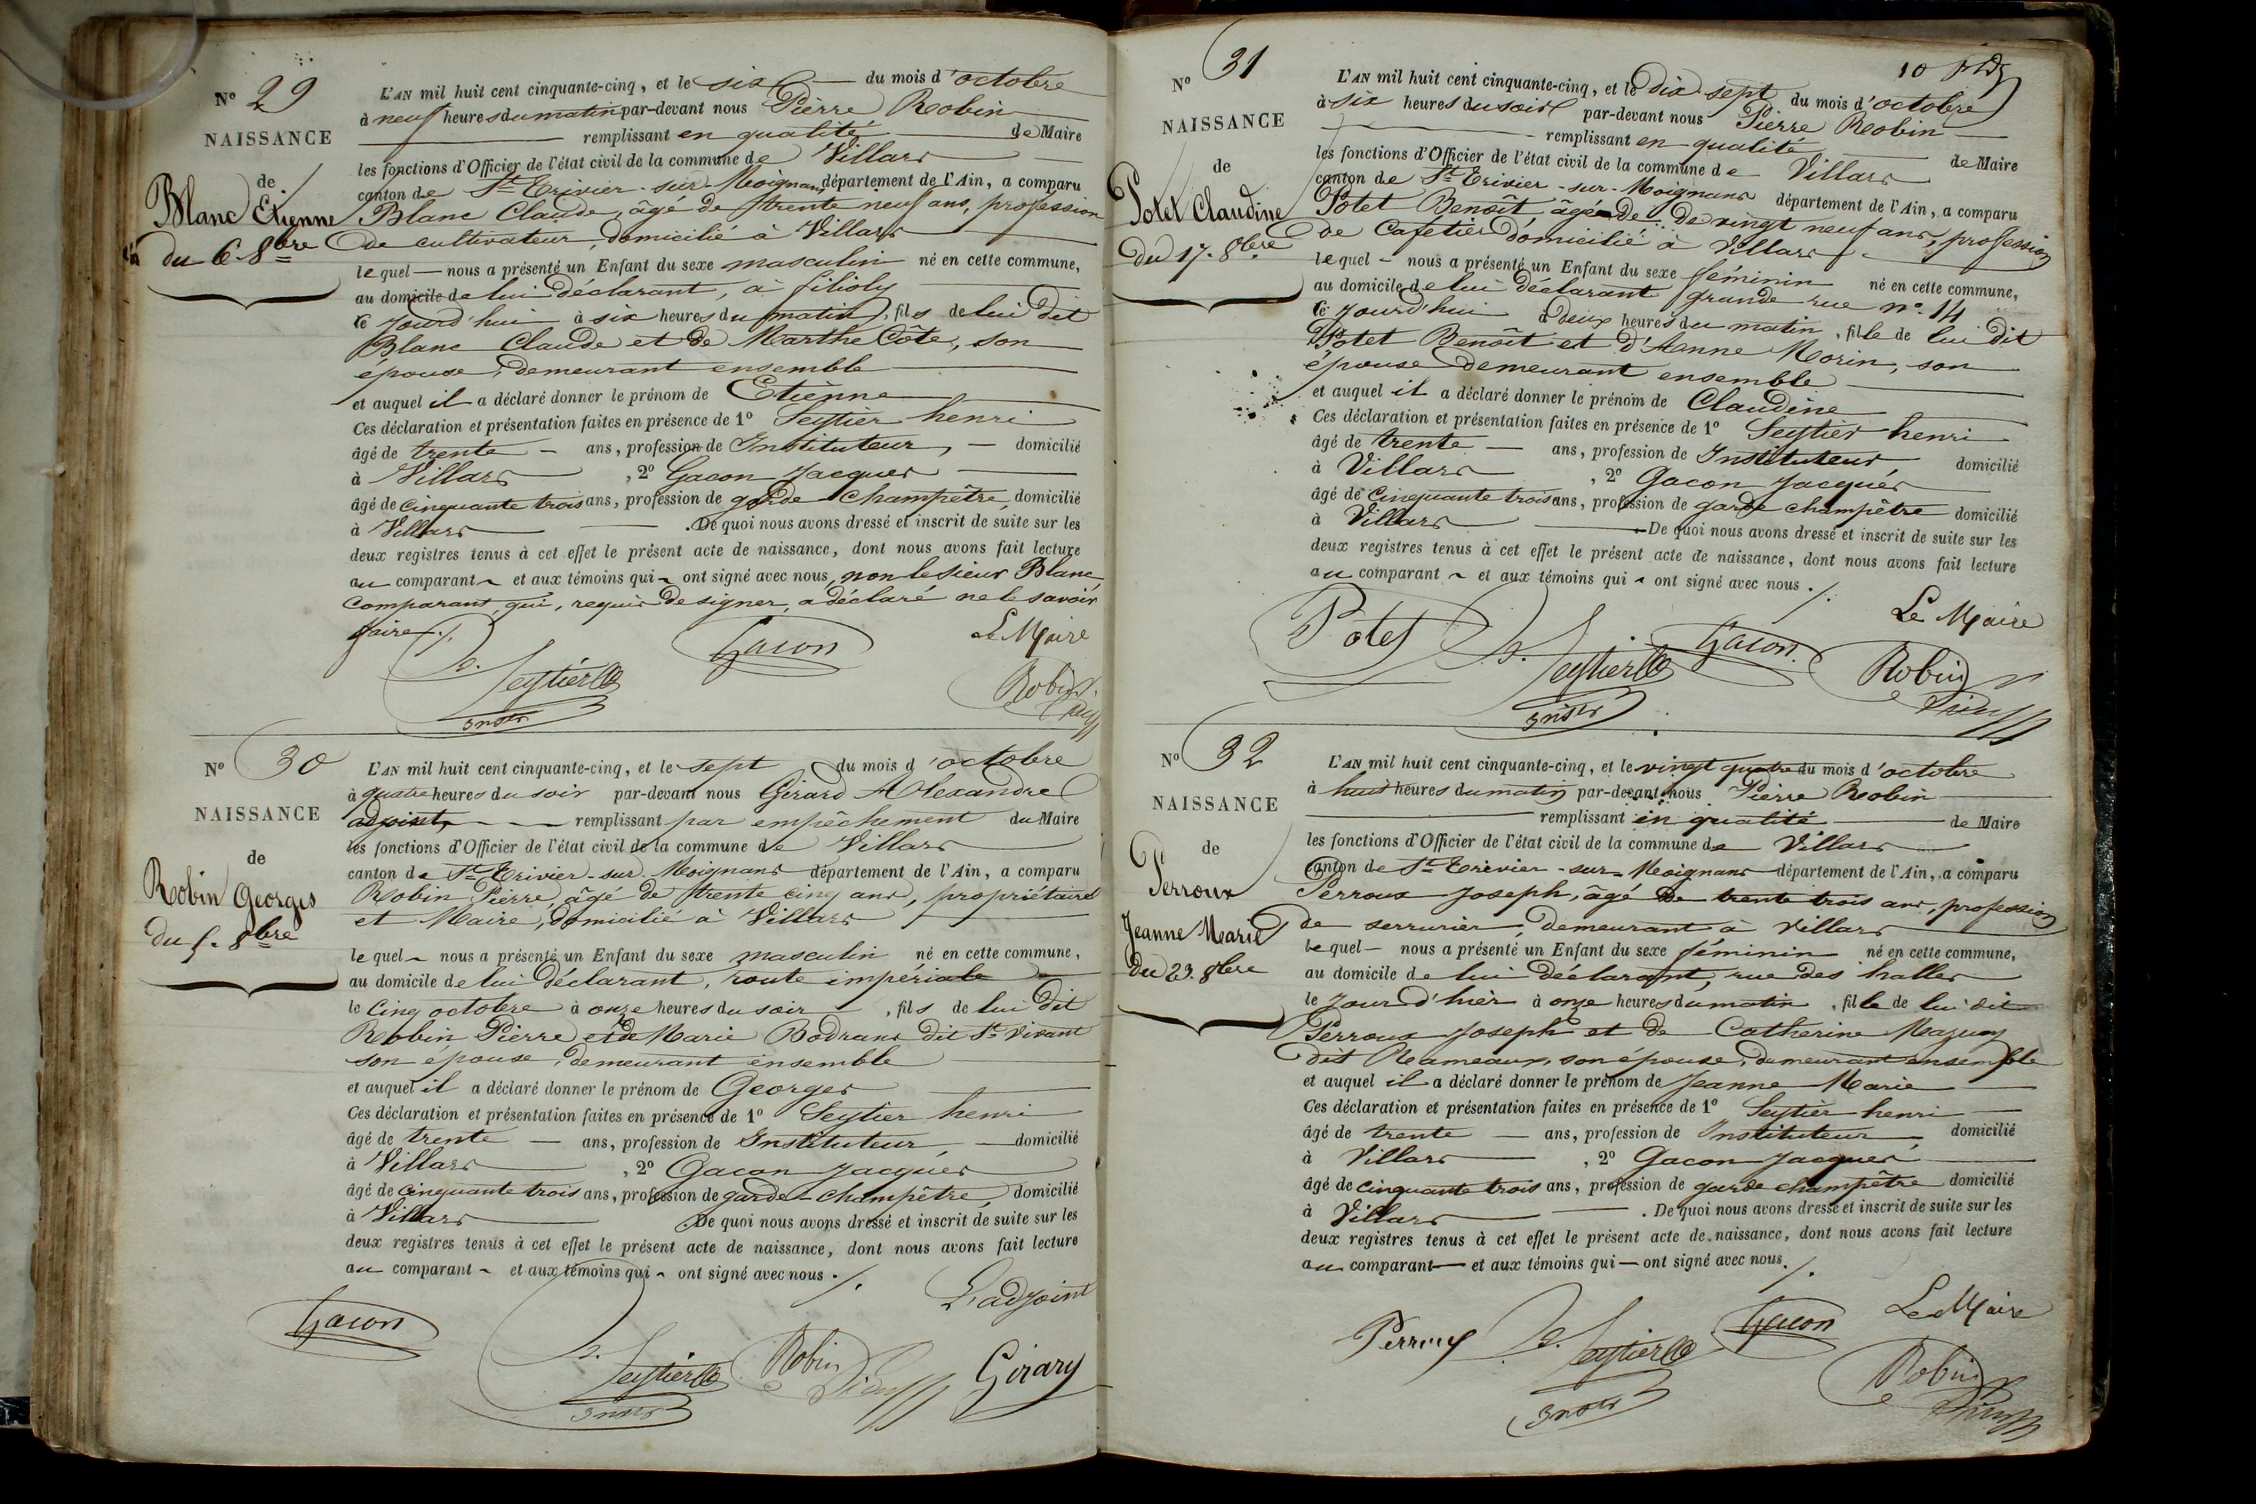 N° 29
NAISSANCE
de
Blanc Etienne
du 6. 8bre
L'AN mil huit cent cinquante-cinq, et le six du mois d'octobre
à neuf heures du matin par-devant nous Pierre Robin
remplissant en qualité de Maire
les fonctions d'Officier de l'état civil de la commune de Villars
canton de St Trivier-sur-Moignans département de l'Ain, a comparu
Blanc Claude, âgé de trente neuf ans, profession
de cultivateur, domicilié à Villars
lequel nous a présenté un Enfant du sexe masculin né en cette commune,
au domicile de lui déclarant, à filioly
ce jourd'hui à six heures du matin, fils de lui dit
Blanc Claude et de Marthe Côte, son
épouse, demeurant ensemble
et auquel il a déclaré donner le prénom de Etienne
Ces déclaration et présentation faites en présence de 1° Seytier henri
âgé de trente ans, profession de Instituteur, domicilié
à Villars, 2° Gacon Jacques
âgé de cinquante trois ans, profession de garde-champêtre, domicilié
à Villars. De quoi nous avons dressé et inscrit de suite sur les
deux registres tenus à cet effet le présent acte de naissance, dont nous avons fait lecture
au comparant et aux témoins qui ont signé avec nous, non le sieur Blanc,
comparant, qui, requis de signer, a déclaré ne le savoir
faire ./.
Le Maire
Gacon
Seytier
Robin
Instr
N° 30
NAISSANCE
de
Robin Georges
du 5. 8bre
L'AN mil huit cent cinquante-cinq, et le sept du mois d'octobre
à quatre heures du soir par-devant nous Girard Alexandre
adjoint, remplissant par empêchement du Maire
les fonctions d'Officier de l'état civil de la commune de Villars
canton de St Trivier-sur-Moignans département de l'Ain, a comparu
Robin Pierre, âgé de trente cinq ans, propriétaire
et Maire, domicilié à Villars
lequel nous a présenté un Enfant du sexe masculin né en cette commune,
au domicile de lui déclarant, route impériale
le cinq octobre à onze heures du soir, fils de lui dit
Robin Pierre et de Marie Bodrans dit St Vivant
son epouse, demeurant ensemble
et auquel il a déclaré donner le prénom de Georges
Ces déclaration et présentation faites en présence de 1° Seytier henri
âgé de trente ans, profession de Instituteur, domicilié
à Villars, 2° Gacon Jacques
âgé de cinquante trois ans, profession de garde-champêtre, domicilié
à Villars. De quoi nous avons dressé et inscrit de suite sur les
deux registres tenus à cet effet le présent acte de naissance, dont nous avons fait lecture
au comparant et aux témoins qui ont signé avec nous ./.
L'adjoint
Gacon
Seytier
Robin
Girard
Instr
N° 31
NAISSANCE
de
Potet Claudine
du 17. 8bre
L'AN mil huit cent cinquante-cinq, et le dix-sept du mois d'octobre
à six heures du soir par-devant nous Pierre Robin
remplissant en qualité de Maire
les fonctions d'Officier de l'état civil de la commune de Villars
canton de St Trivier-sur-Moignans département de l'Ain, a comparu
Potet Benoît, âgé de de vingt neuf ans, profession
de Cafetier domicilié à Villars
lequel nous a présenté un Enfant du sexe féminin né en cette commune,
au domicile de lui déclarant grande rue n° 14
ce jourd'hui à deux heures du matin, fille de lui dit
Potet Benoît et d'Anne Morin, son
épouse demeurant ensemble
et auquel il a déclaré donner le prénom de Claudine
Ces déclaration et présentation faites en présence de 1° Seytier henri
âgé de trente ans, profession de Instituteur domicilié
à Villars, 2° Gacon Jacques
âgé de cinquante trois ans, profession de garde champêtre domicilié
à Villars. De quoi nous avons dressé et inscrit de suite sur les
deux registres tenus à cet effet le présent acte de naissance, dont nous avons fait lecture
au comparant et aux témoins qui ont signé avec nous ./.
Le Maire
Potet
Seytier
Gacon
Robin
Instr
N° 32
NAISSANCE
de
Perroux
Jeanne Marie
du 23. 8bre
L'AN mil huit cent cinquante-cinq, et le vingt quatre du mois d'octobre
à huit heures du matin par-devant nous Pierre Robin
remplissant en qualité de Maire
les fonctions d'Officier de l'état civil de la commune de Villars
canton de St Trivier-sur-Moignans département de l'Ain, a comparu
Perroux Joseph, âgé de trente trois ans, profession
de serrurier, demeurant à Villars
lequel nous a présenté un Enfant du sexe féminin né en cette commune,
au domicile de lui déclarant, rue des halles
le jour d'hier à onze heures du matin, fille de lui dit
Perroux Joseph et de Catherine Mazuy
dit Rameaux, son épouse, demeurant ensemble
et auquel il a déclaré donner le prénom de Jeanne Marie
Ces déclaration et présentation faites en présence de 1° Seytier henri
âgé de trente ans, profession de Instituteur domicilié
à Villars, 2° Gacon Jacques
âgé de cinquante trois ans, profession de garde champêtre domicilié
à Villars. De quoi nous avons dressé et inscrit de suite sur les
deux registres tenus à cet effet le présent acte de naissance, dont nous avons fait lecture
au comparant et aux témoins qui ont signé avec nous ./.
Le Maire
Perroux
Seytier
Gacon
Robin
Instr